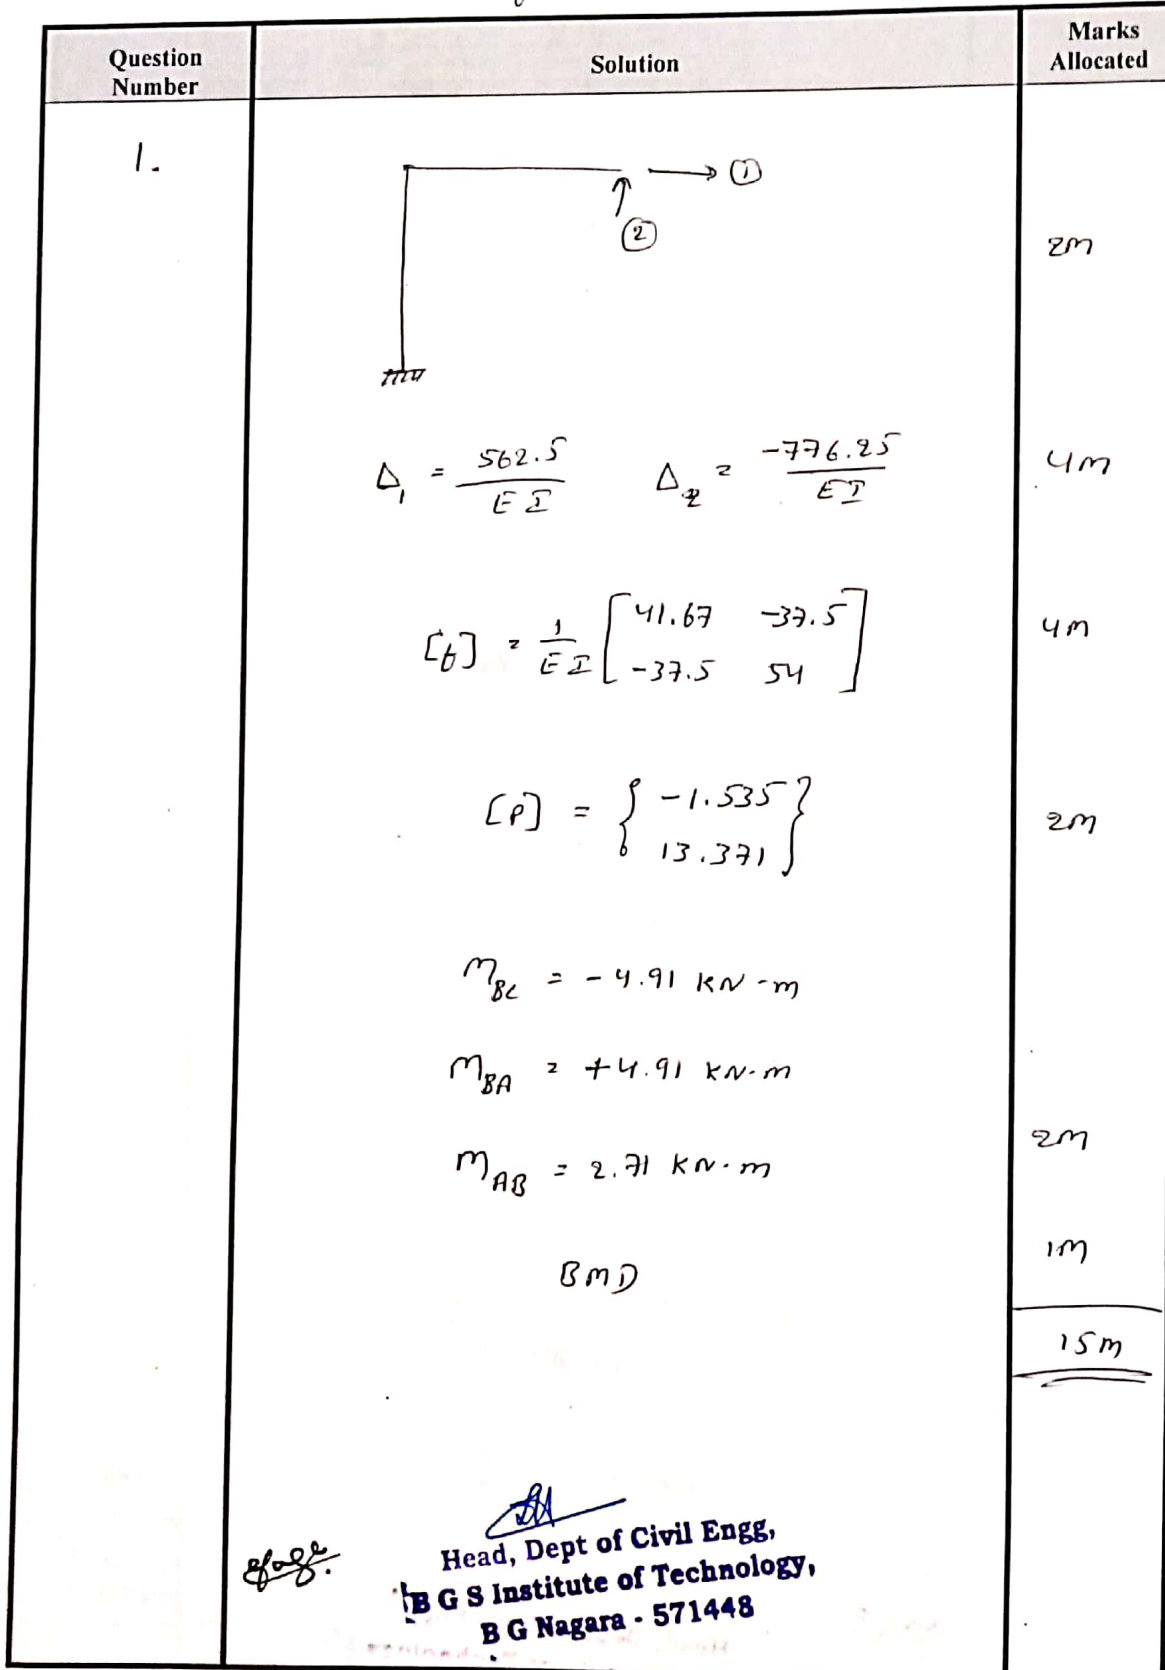 Question Number
Solution
Marks Allocated
1.
→ ①
②
2m
Δ₁ = 562.5 / EI    Δ₂ = -776.25 / EI
4m
[f] = 1/EI [ 41.67  -37.5
-37.5  54 ]
4m
[P] = { -1.535
13.371 }
2m
M_BC = -4.91 KN-m
M_BA = +4.91 KN.m
M_AB = 2.71 KN.m
2m
BMD
1m
15m
Head, Dept of Civil Engg,
B G S Institute of Technology,
B G Nagara - 571448